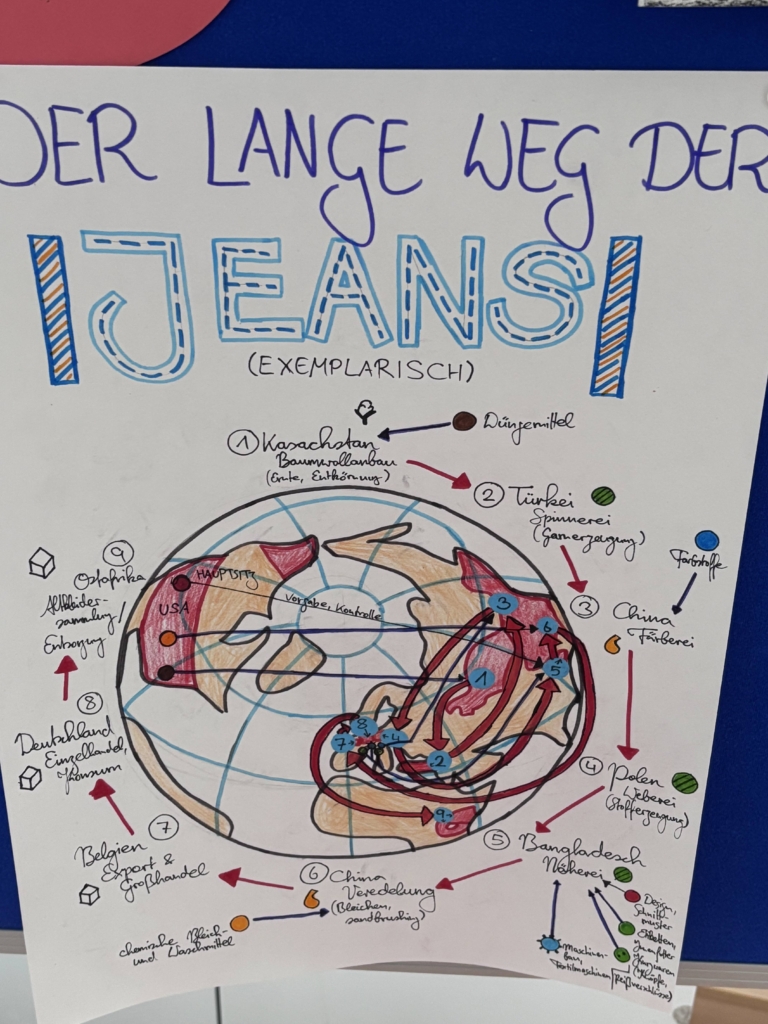 DER LANGE WEG DER
JEANS
(EXEMPLARISCH)
Düngemittel
① Kasachstan
Baumwollanbau
(Ernte, Entkörnung)
② Türkei
Spinnerei
(Garnerzeugung)
Farbstoffe
③ China
Färberei
④ Polen
Weberei
(Stofferzeugung)
⑤ Bangladesch
Näherei
Design,
Schnitt-
muster
Etiketten,
Innenfutter
Kurzwaren
(Knöpfe,
Reißverschlüsse)
Maschinen-
bau,
Textilmaschinen
⑥ China
Veredelung
(Bleichen,
sandbrushing)
chemische Bleich-
und Waschmittel
⑦ Belgien
Export &
Großhandel
⑧ Deutschland
Einzelhandel,
Konsum
⑨ Ostafrika
Altkleider-
sammlung/
Entsorgung
HAUPTSITZ
USA
Vorgabe, Kontrolle
3
6
5
1
8
7
4
2
9